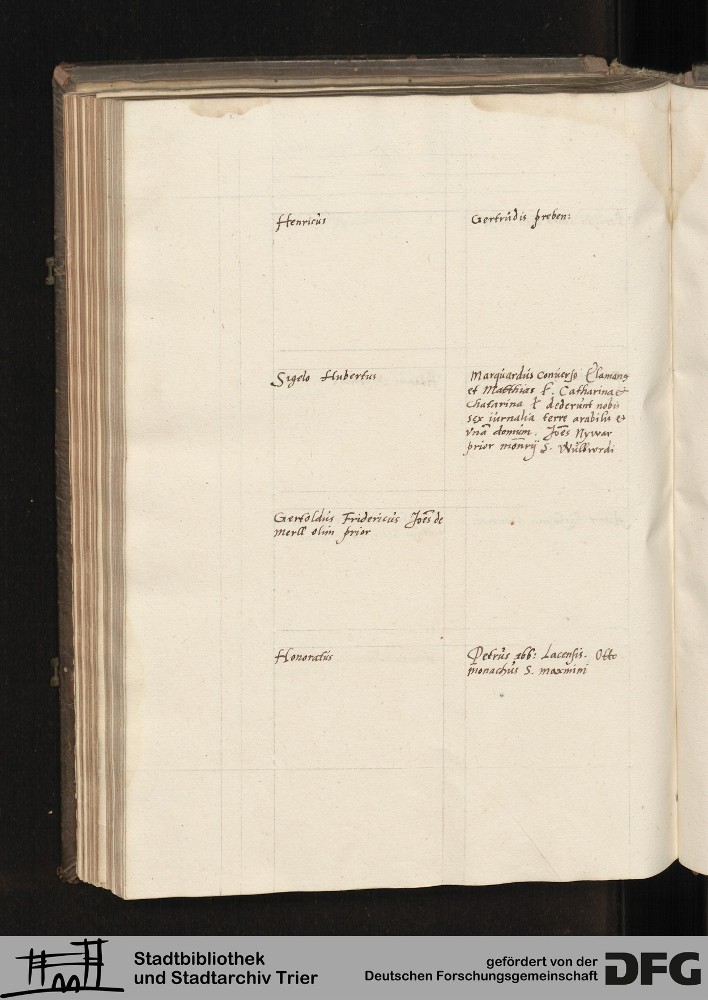 Henricus
Gertrudis preben:
Sigelo Hubertus
Marquardus conuerso
et Matthias f. Catharina &
Chatarina f dederunt nobis
sex iurnalia terre arabilis &
vna domum. Joes Nywar
prior monrij S. Wullwordi
Gertoldus Fridericus Joes de
merll olim prior
Honoratus
Petrus abb: Lacensis. Otto
monachus S. maximini
Stadtbibliothek
und Stadtarchiv Trier
gefördert von der
Deutschen Forschungsgemeinschaft
DFG